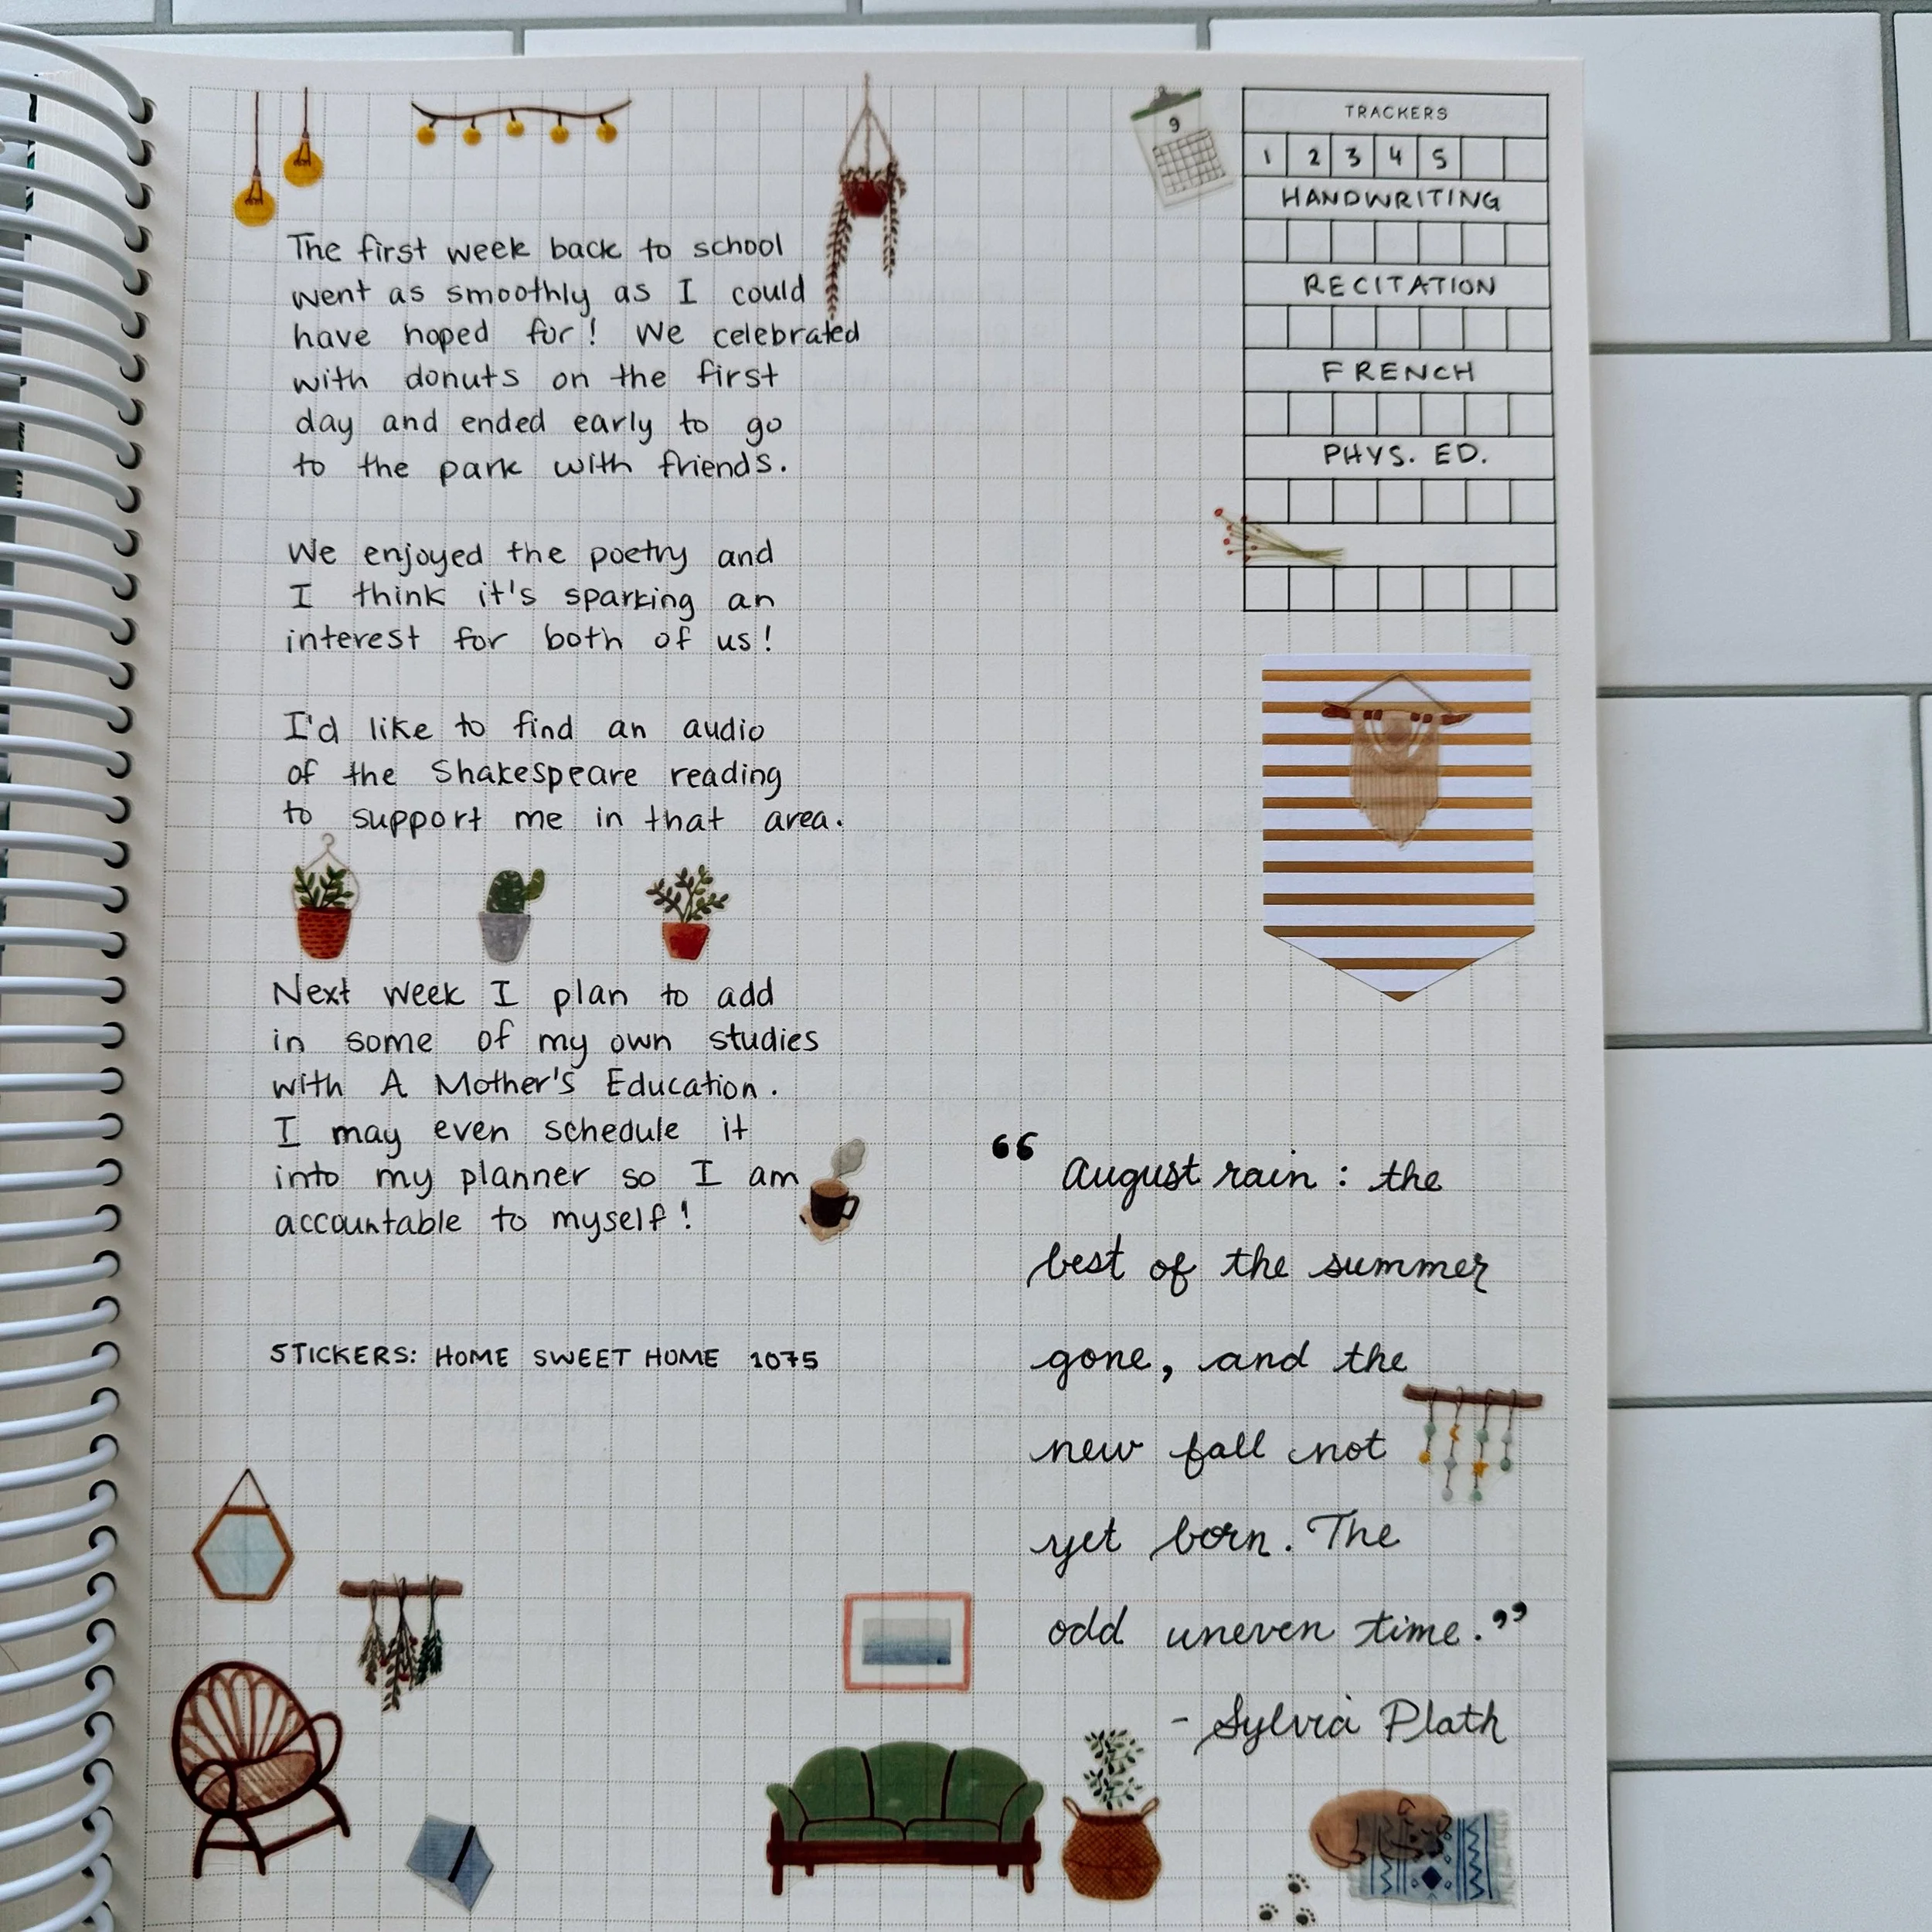 The first week back to school
went as smoothly as I could
have hoped for! We celebrated
with donuts on the first
day and ended early to go
to the park with friends.
We enjoyed the poetry and
I think it's sparking an
interest for both of us!
I'd like to find an audio
of the Shakespeare reading
to support me in that area.
Next week I plan to add
in some of my own studies
with A Mother's Education.
I may even schedule it
into my planner so I am
accountable to myself!
STICKERS: HOME SWEET HOME 1075
9
TRACKERS
1 2 3 4 5
HANDWRITING
RECITATION
FRENCH
PHYS. ED.
“ August rain: the
best of the summer
gone, and the
new fall not
yet born. The
odd uneven time.”
- Sylvia Plath